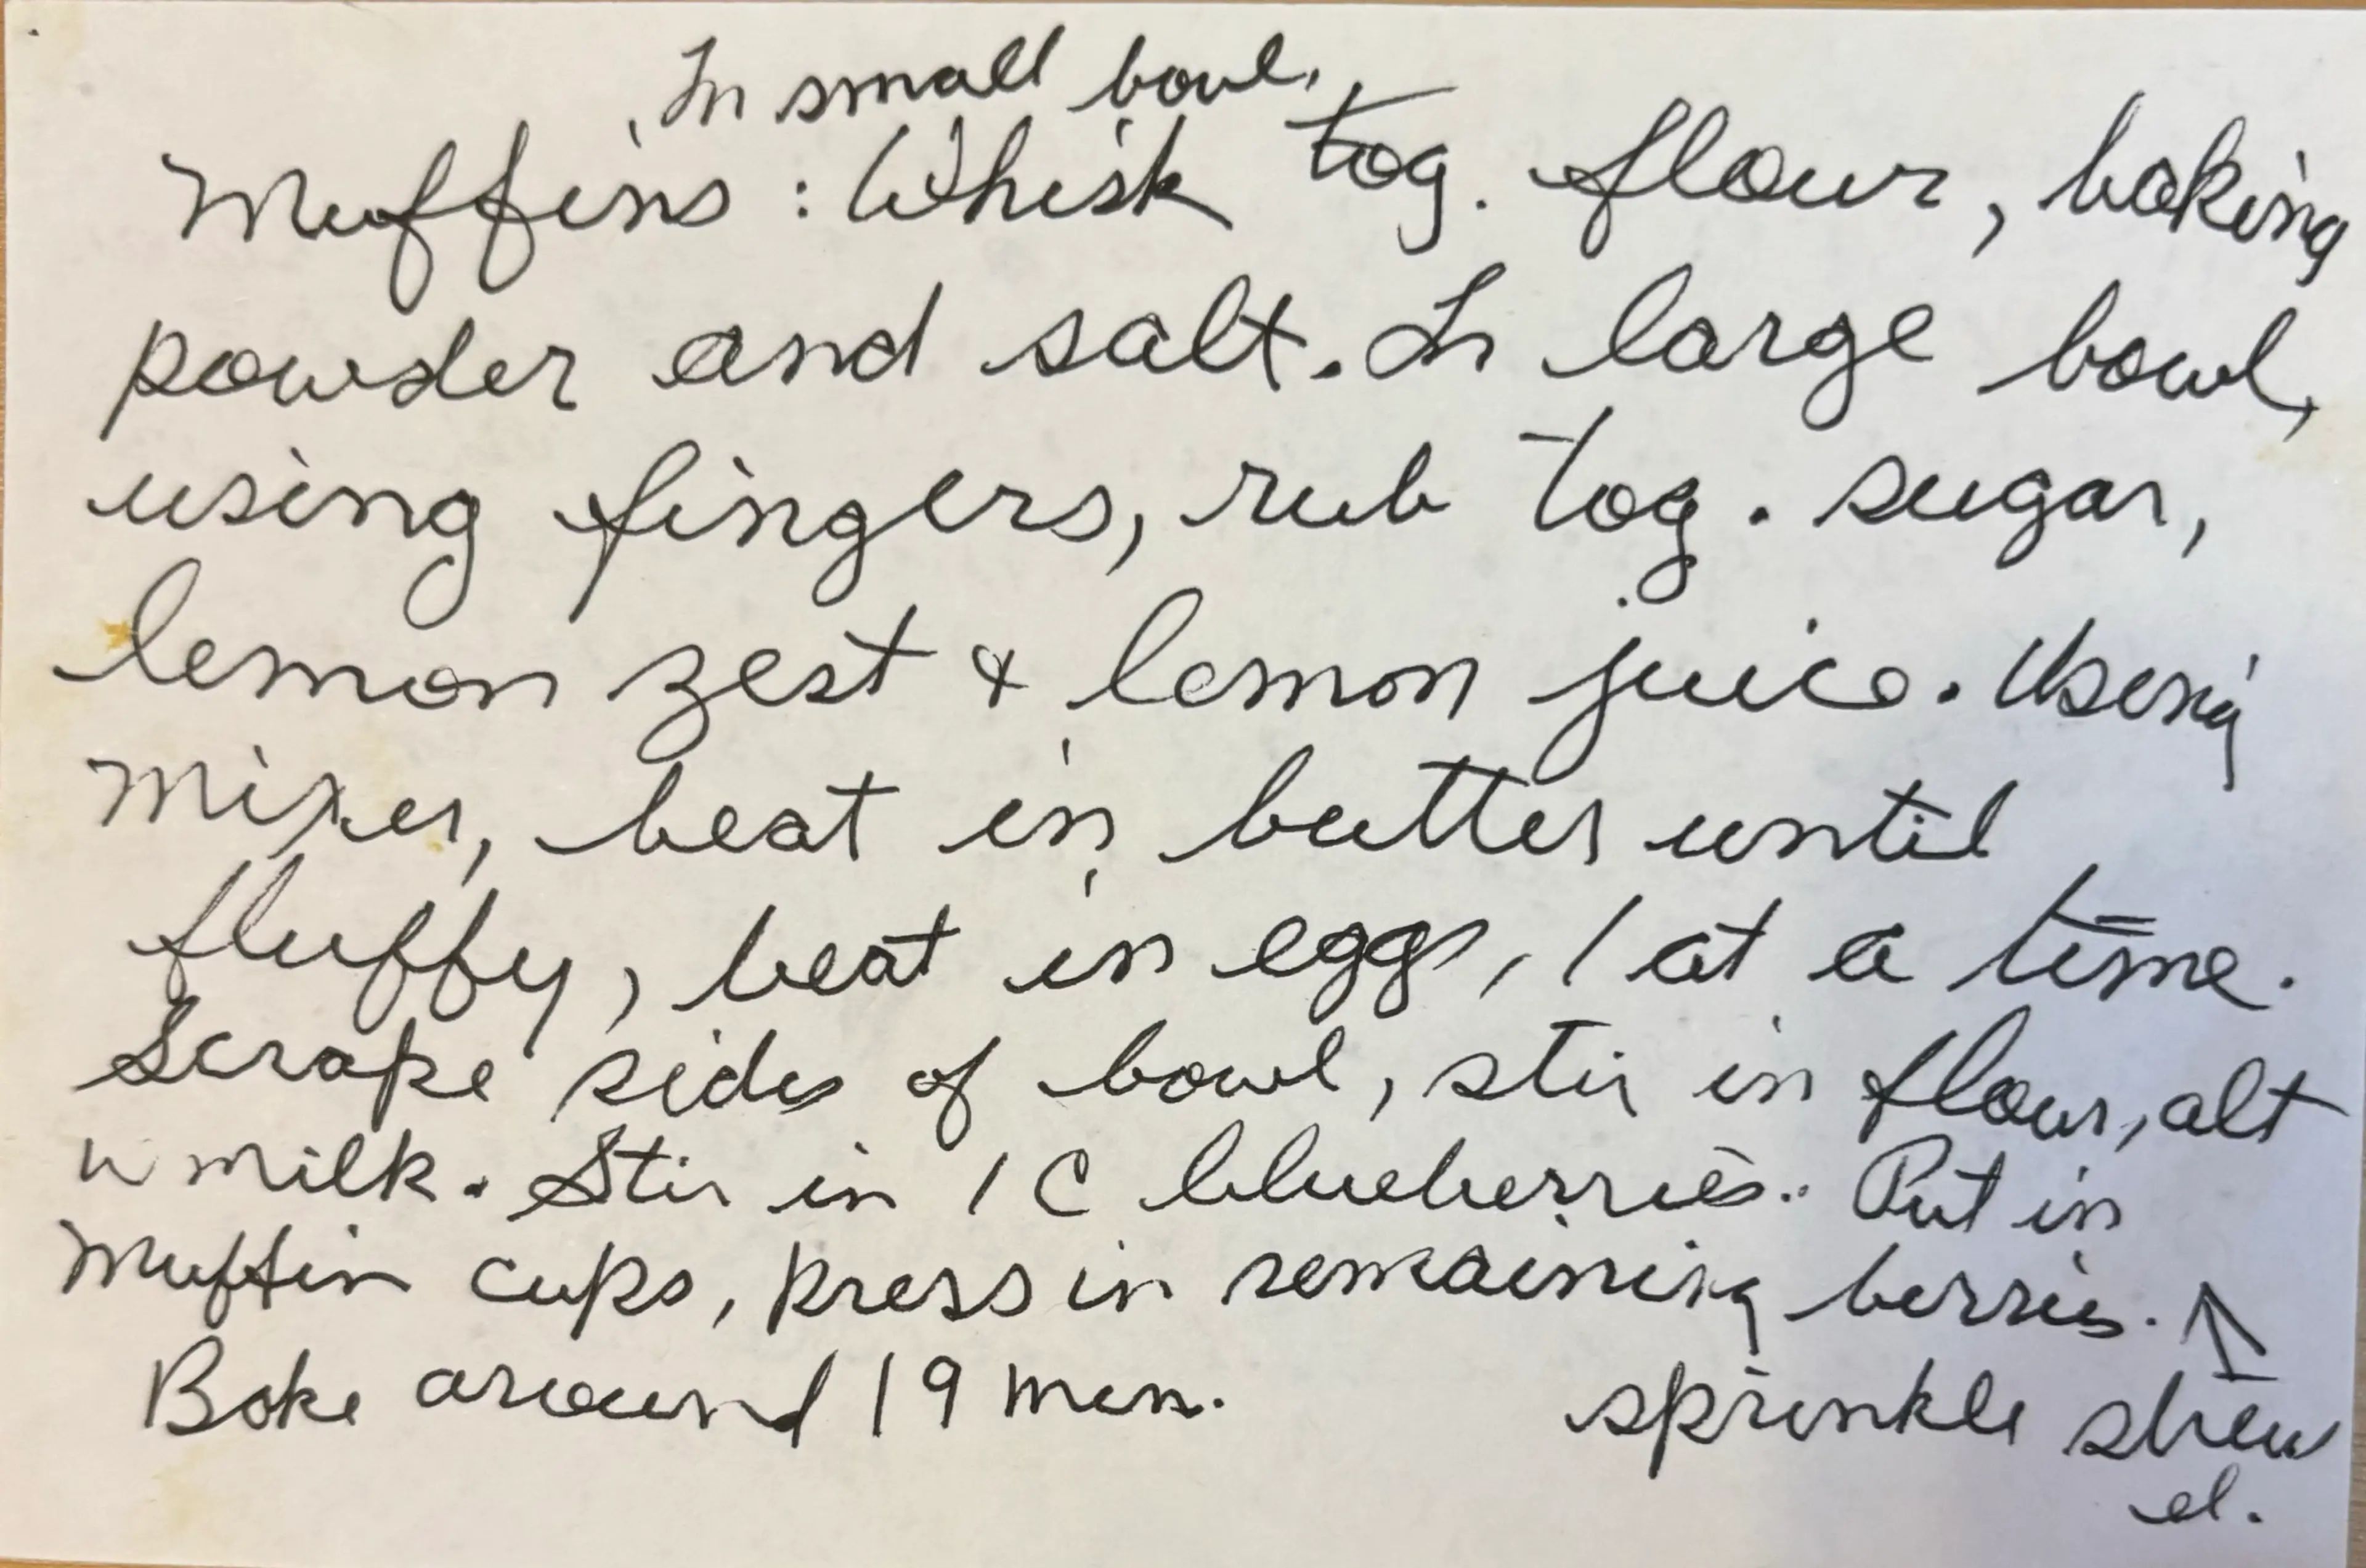 In small bowl,
Muffins : Whisk tog. flour, baking
powder and salt. In large bowl,
using fingers, rub tog. sugar,
lemon zest & lemon juice. Using
mixer, beat in butter until
fluffy, beat in eggs, 1 at a time.
Scrape sides of bowl, stir in flour, alt
w milk. Stir in 1 C blueberries. Put in
muffin cups, press in remaining berries. ↑
Bake around 19 min. sprinkle streu
el.